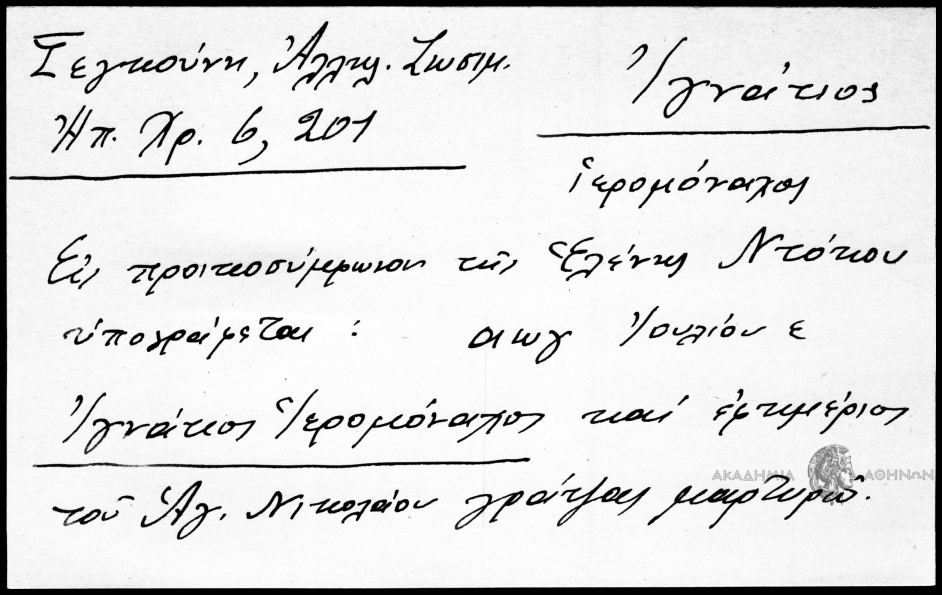 Σεγκούνη, Ἀλληλ. Ζωσιμ.
Ἠπ. Χρ. 6, 201
Ἰγνάτιος
ἱερομόναχος
Εἰς προικοσύμφωνον τῆς Ἑλένης Ντότου
ὑπογράφεται : αωγ Ἰουλίου ε
Ἰγνάτιος Ἱερομόναχος καί ἐφημέριος
τοῦ Ἁγ. Νικολάου γράτζας μαρτυρῶ.
ΑΚΑΔΗΜΙΑ ΑΘΗΝΩΝ